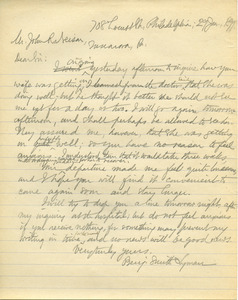 708 Locust St., Philadelphia,
Mr. John R.
Dear Sir:
yesterday afternoon to inquire how your
wife was getting from the doctor that she was
doing well; but he thought it better she should not see
me yet for a day or two. I will go again tomorrow
afternoon, and shall perhaps be allowed to
They assured me, however, that she was getting
on well; so you have no reason to feel
three weeks
departure made me feel quite
and I hope you will find it convenient to
come again soon and stay longer.
I will try to drop you a line tomorrow night after
my inquiry at the hospital; but do not feel anxious
if you receive nothing for something may prevent my
writing in time, and no news will be good news.
Very truly yours,
Benj. Smith Lyman